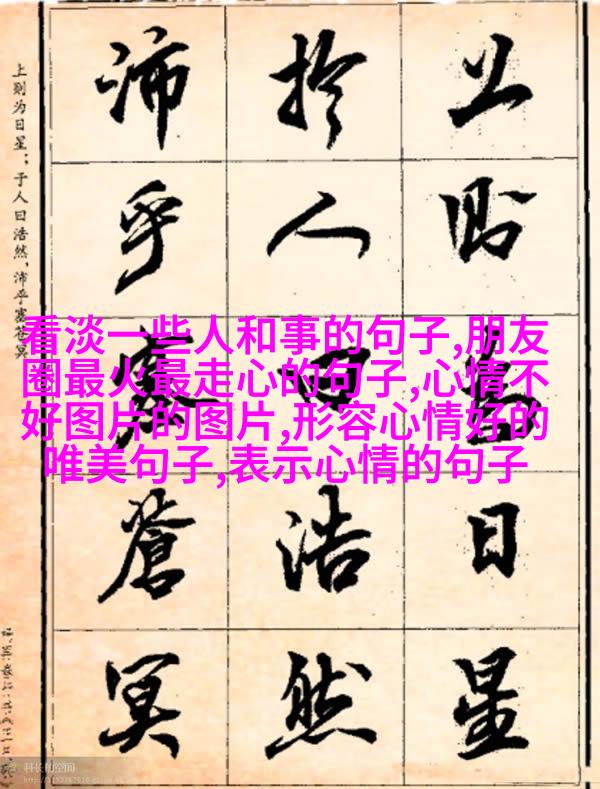 上则为日星
於人曰浩然
沛乎塞蒼冥
上则为日星；于人曰浩然，沛乎塞苍冥
看淡一些人和事的句子,朋友
圈最火最走心的句子,心情不
好图片的图片,形容心情好的
唯美句子,表示心情的句子
科长的空间